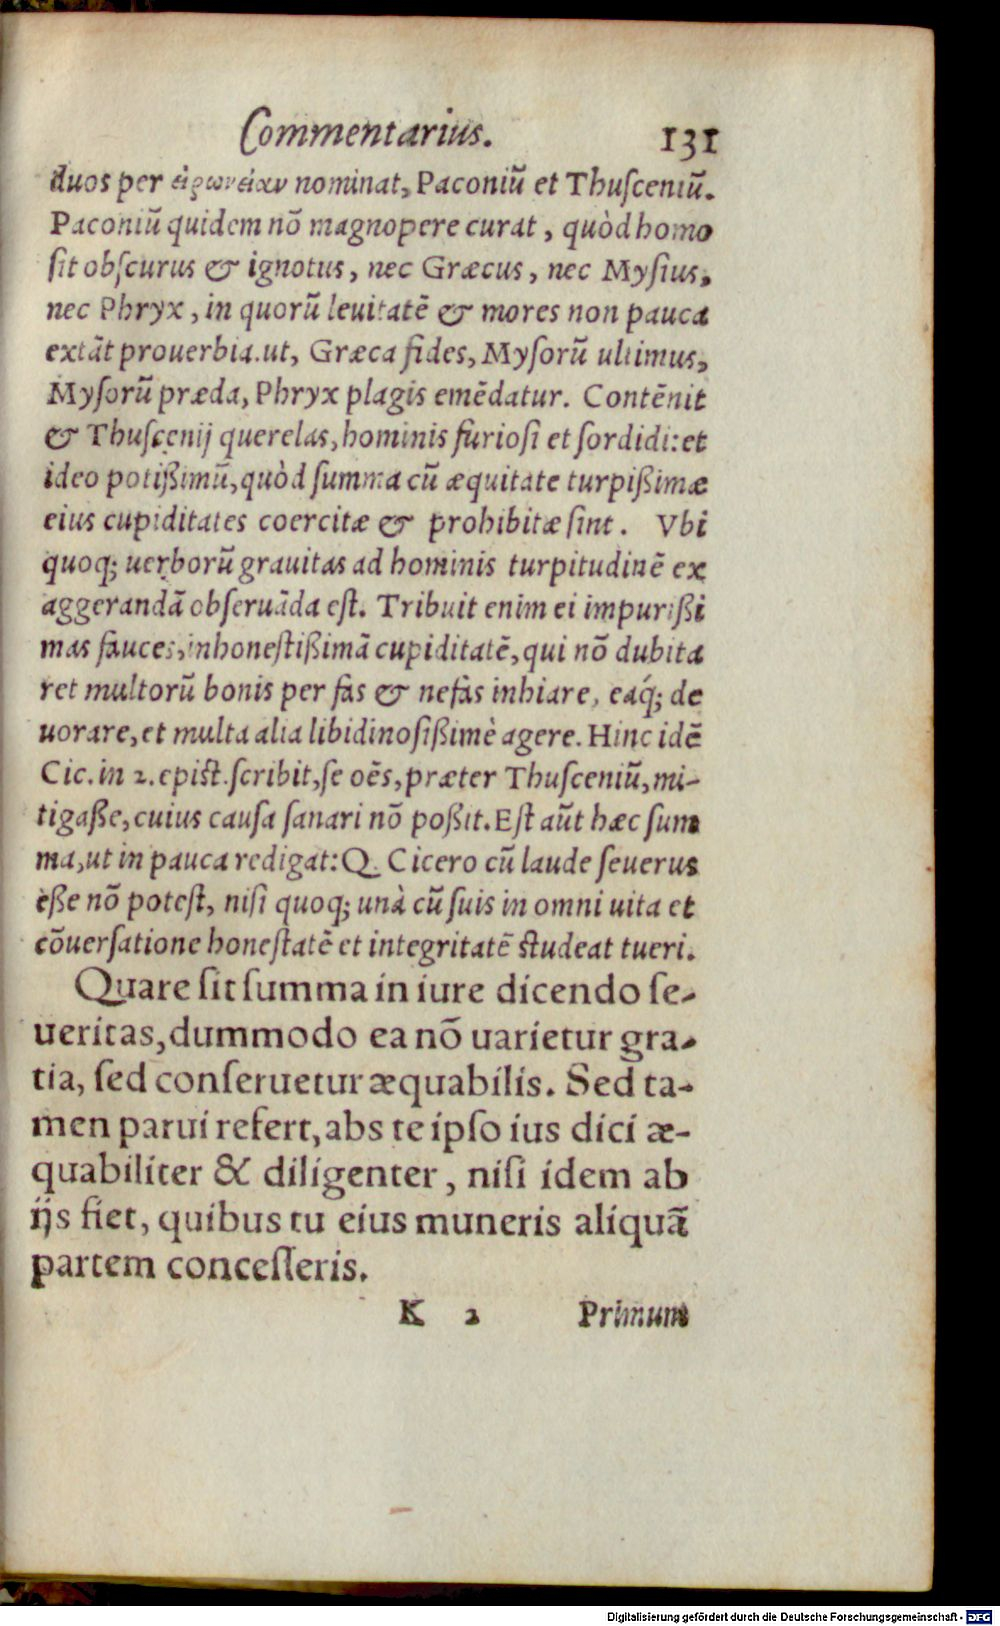 Commentarius. 131
duos per εἰρωνείαν nominat, Paconiũ et Thuſceniũ.
Paconiũ quidem nõ magnopere curat, quòd homo
ſit obſcurus & ignotus, nec Græcus, nec Myſius,
nec Phryx, in quorũ leuitatẽ & mores non pauca
extãt prouerbia. ut, Græca fides, Myſorũ ultimus,
Myſorũ præda, Phryx plagis emẽdatur. Contẽnit
& Thuſcenij querelas, hominis furioſi et ſordidi: et
ideo potißimũ, quòd ſumma cũ æquitate turpißimæ
eius cupiditates coercitæ & prohibitæ ſint. Vbi
quoq; uerborũ grauitas ad hominis turpitudinẽ ex
aggerandã obſeruãda eſt. Tribuit enim ei impurißi
mas fauces, inhoneſtißimã cupiditatẽ, qui nõ dubita
ret multorũ bonis per fas & nefas inhiare, eáq; de
uorare, et multa alia libidinoſißimè agere. Hinc idẽ
Cic. in 2. epiſt. ſcribit, ſe oẽs, præter Thuſceniũ, mi-
tigaße, cuius cauſa ſanari nõ poßit. Eſt aũt hæc ſum
ma, ut in pauca redigat: Q. Cicero cũ laude ſeuerus
eße nõ poteſt, niſi quoq; unà cũ ſuis in omni uita et
cõuerſatione honeſtatẽ et integritatẽ ſtudeat tueri.
Quare ſit ſumma in iure dicendo ſe-
ueritas, dummodo ea nõ uarietur gra-
tia, ſed conſeruetur æquabilis. Sed ta-
men parui refert, abs te ipſo ius dici æ-
quabiliter & diligenter, niſi idem ab
ijs fiet, quibus tu eius muneris aliquã
partem conceſſeris.
K 2 Primum
Digitalisierung gefördert durch die Deutsche Forschungsgemeinschaft - DFG